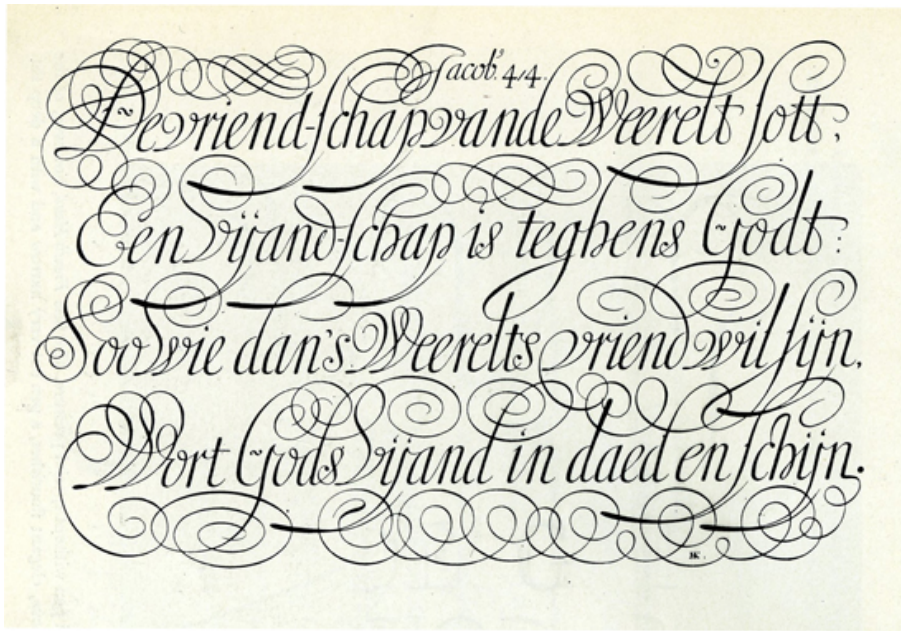 Jacob's. 4,4.
De vriend-schap vande Weerelt sott,
Een Vijand-schap is teghens Godt:
Soo wie dan's Weerelts vriend wil sijn,
Wort Gods Vijand in daed en schijn.